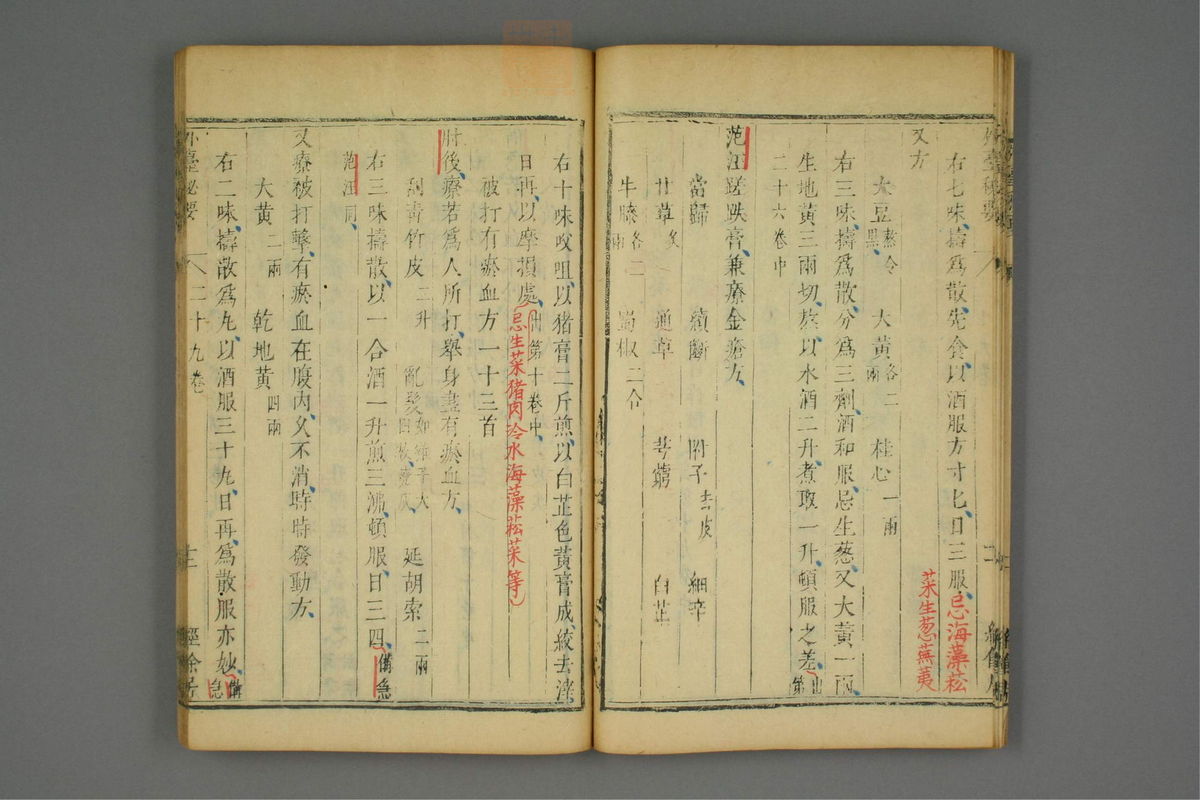 右七味、擣為散、先食、以酒服方寸匕、日三服、忌海藻菘
菜生葱蕪荑
又方
大豆熬令黑、大黃各二兩 桂心一兩
右三味、擣爲散、分爲三劑、酒和服忌生葱、又大黃一兩、
生地黃三兩切、於以水酒二升煮取一升、頓服之差、出第
二十六卷中
范汪蹉跌膏、兼療金瘡方、
當歸 續斷 附子去皮 細辛
甘草炙 通草 芎藭 白芷
牛膝各二兩 蜀椒二合
右十味㕮咀、以猪膏二斤煎、以白芷色黃膏成、絞去滓、
日再以摩損處、出第十卷中
忌生菜猪肉冷水海藻菘菜等
被打有瘀血方一十三首
肘後、療若爲人所打、舉身盡有瘀血方、
刮青竹皮二升 亂髮如雞子大四枚燒灰 延胡索二兩
右三味擣散、以一合酒一升煎三沸、頓服、日三四、備急
范汪同、
又療被打擊、有瘀血在腹內、久不消、時時發動方、
大黃二兩 乾地黃四兩
右二味、擣散爲丸、以酒服三十丸、日再爲散服亦妙、備急
外臺祕要 二十九卷 十二 經餘居